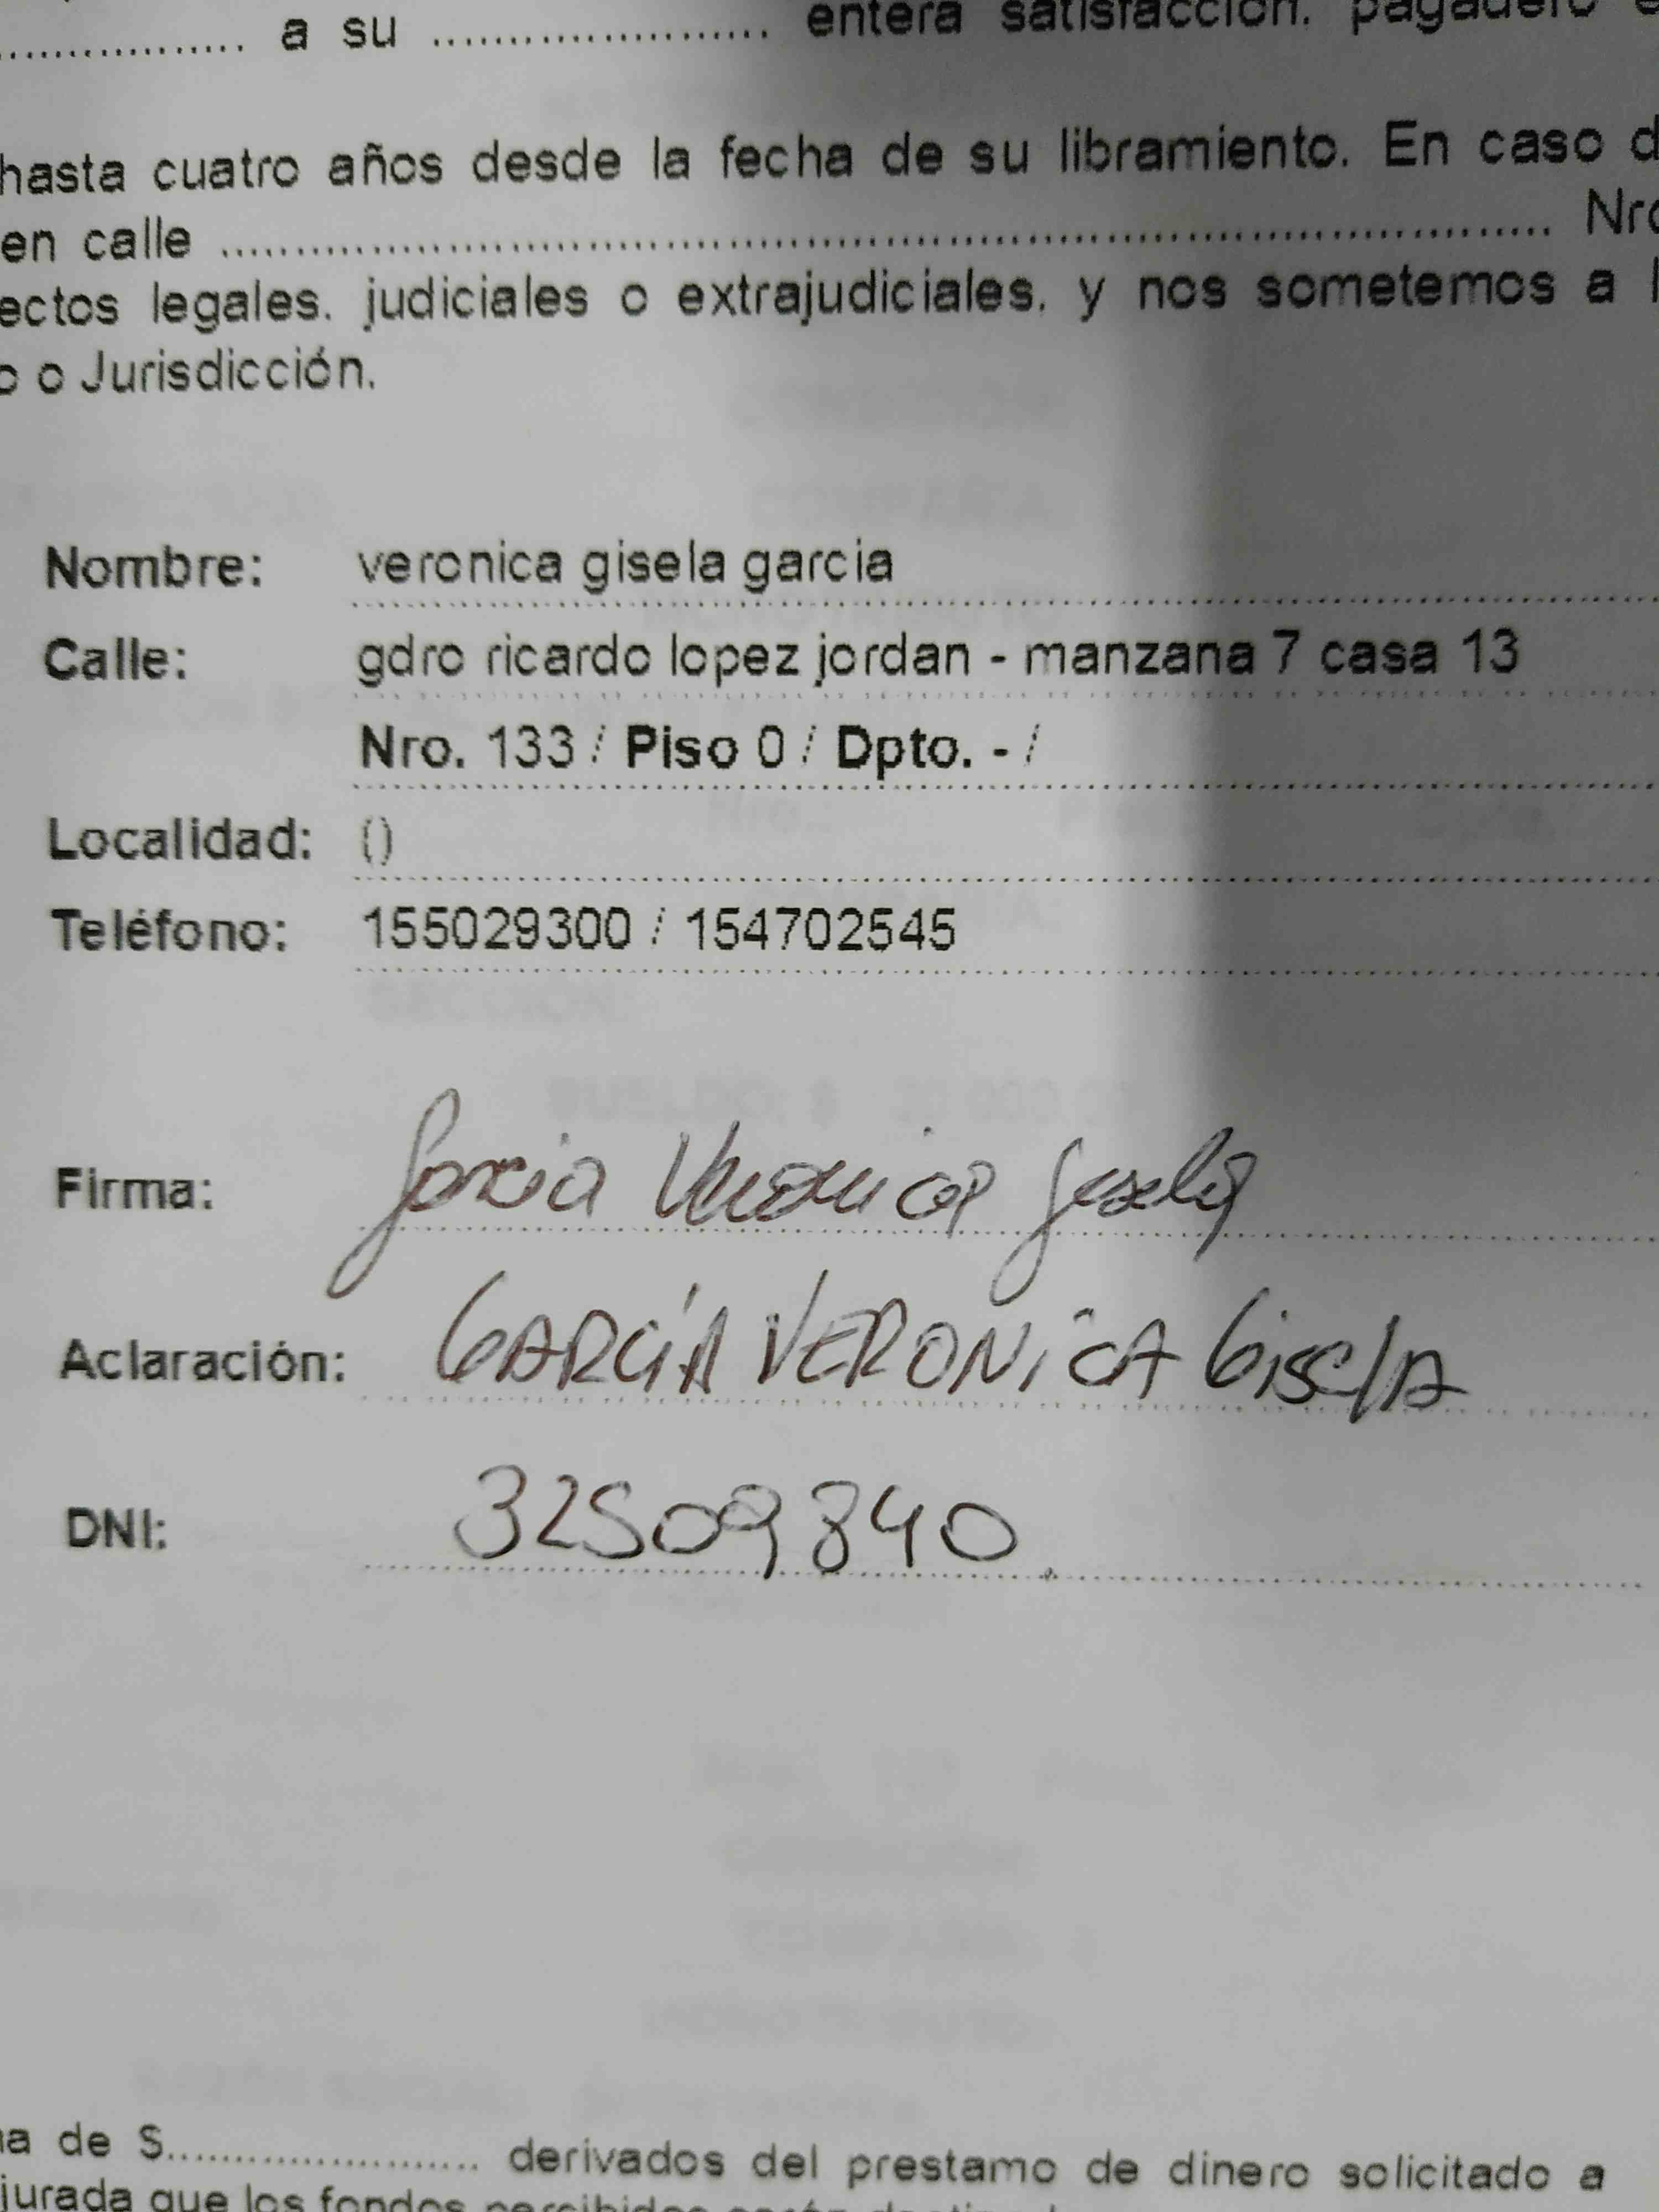 .................. a su ........................ entera satisfacción. pagadero
hasta cuatro años desde la fecha de su libramiento. En caso
en calle ........................................................................................ Nro
ectos legales. judiciales o extrajudiciales. y nos sometemos a
o o Jurisdicción.
Nombre: veronica gisela garcia
Calle: gdro ricardo lopez jordan - manzana 7 casa 13
Nro. 133 / Piso 0 / Dpto. - /
Localidad: ()
Teléfono: 155029300 / 154702545
Firma: Garcia Veronica Gisela
Aclaración: GARCÍA VERONICA GISElA
DNI: 32509840.
de $...................... derivados del prestamo de dinero solicitado a
jurada que los fondos percibidos